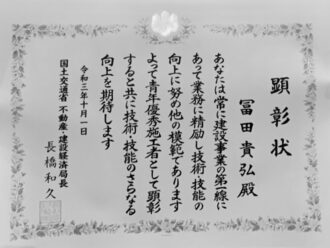 顕彰状
冨田貴弘殿
あなたは常に建設事業の第一線に
あって業務に精励し技術・技能の
向上に努め他の模範であります
よって青年優秀施工者として顕彰
すると共に技術・技能のさらなる
向上を期待します
令和三年十月一日
国土交通省 不動産・建設経済局長
長橋和久